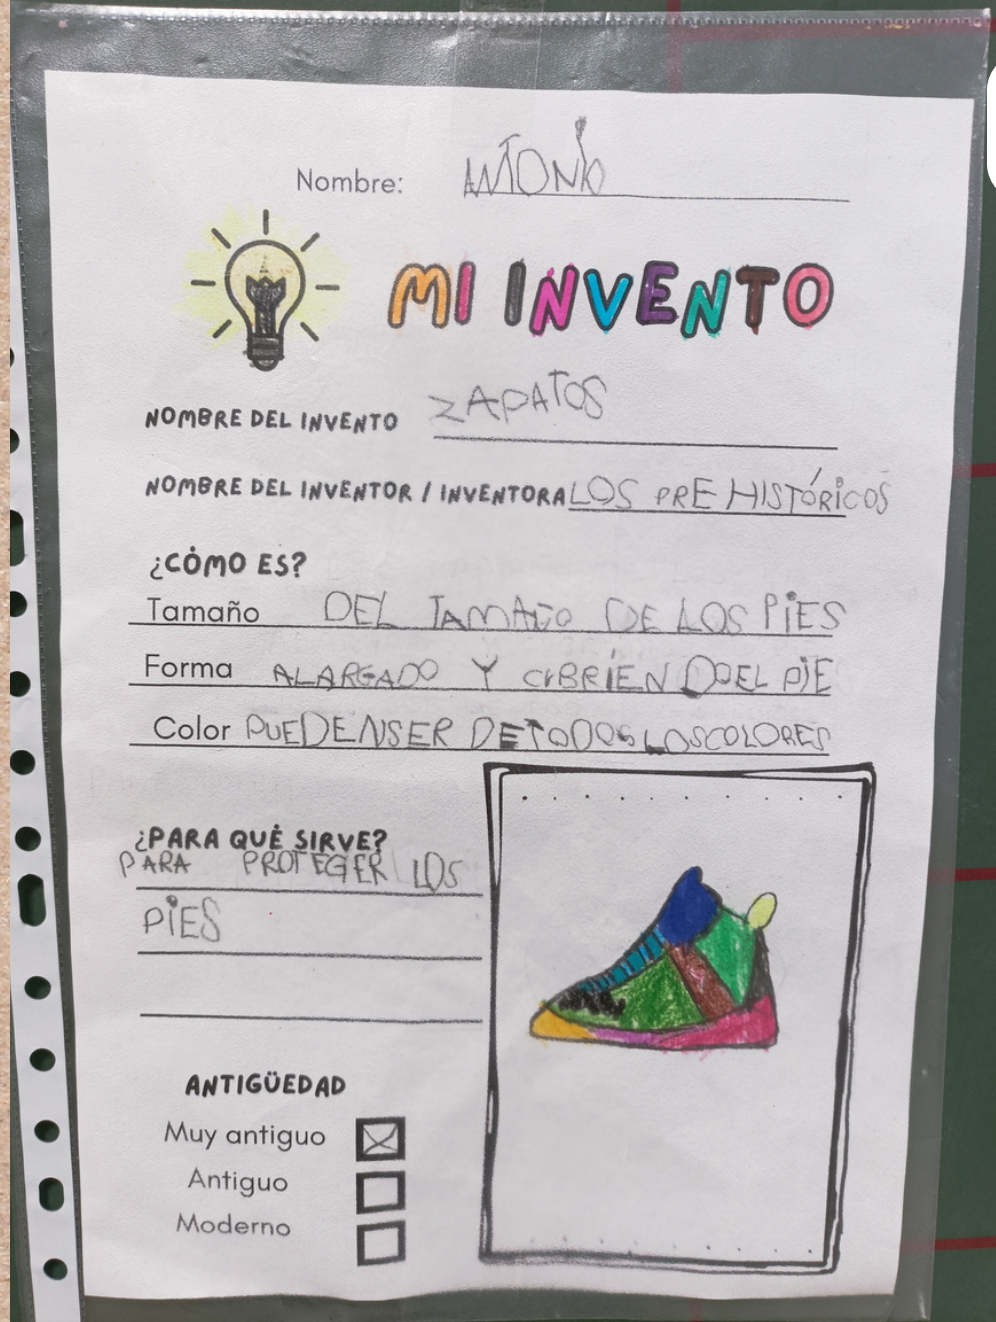 Nombre: ANTONIO
MI INVENTO
NOMBRE DEL INVENTO ZAPATOS
NOMBRE DEL INVENTOR / INVENTORA LOS PREHISTÓRICOS
¿CÓMO ES?
Tamaño DEL TAMAÑO DE LOS PIES
Forma ALARGADO Y CUBRIENDO EL PIE
Color PUEDEN SER DE TODOS LOS COLORES
¿PARA QUÉ SIRVE?
PARA PROTEGER LOS
PIES
ANTIGÜEDAD
Muy antiguo
Antiguo
Moderno